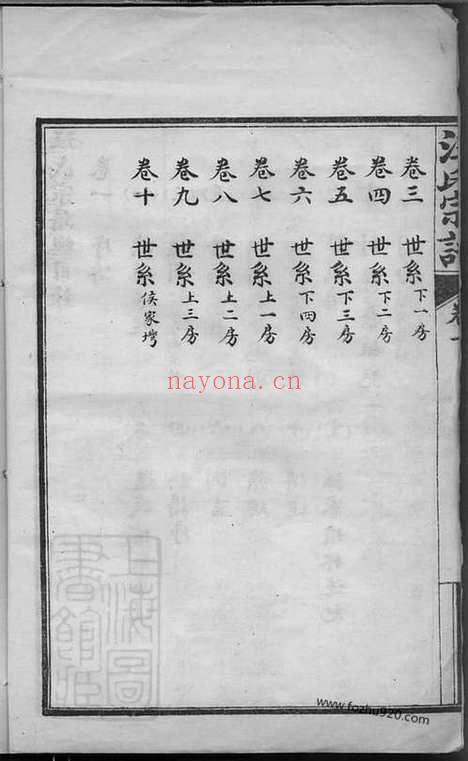 汪氏宗譜
卷一
卷三 世系 下一房
卷四 世系 下二房
卷五 世系 下三房
卷六 世系 下四房
卷七 世系 上一房
卷八 世系 上二房
卷九 世系 上三房
卷十 世系 侯家灣
nayona.cn
上海圖書館藏
www.fozhu920.com